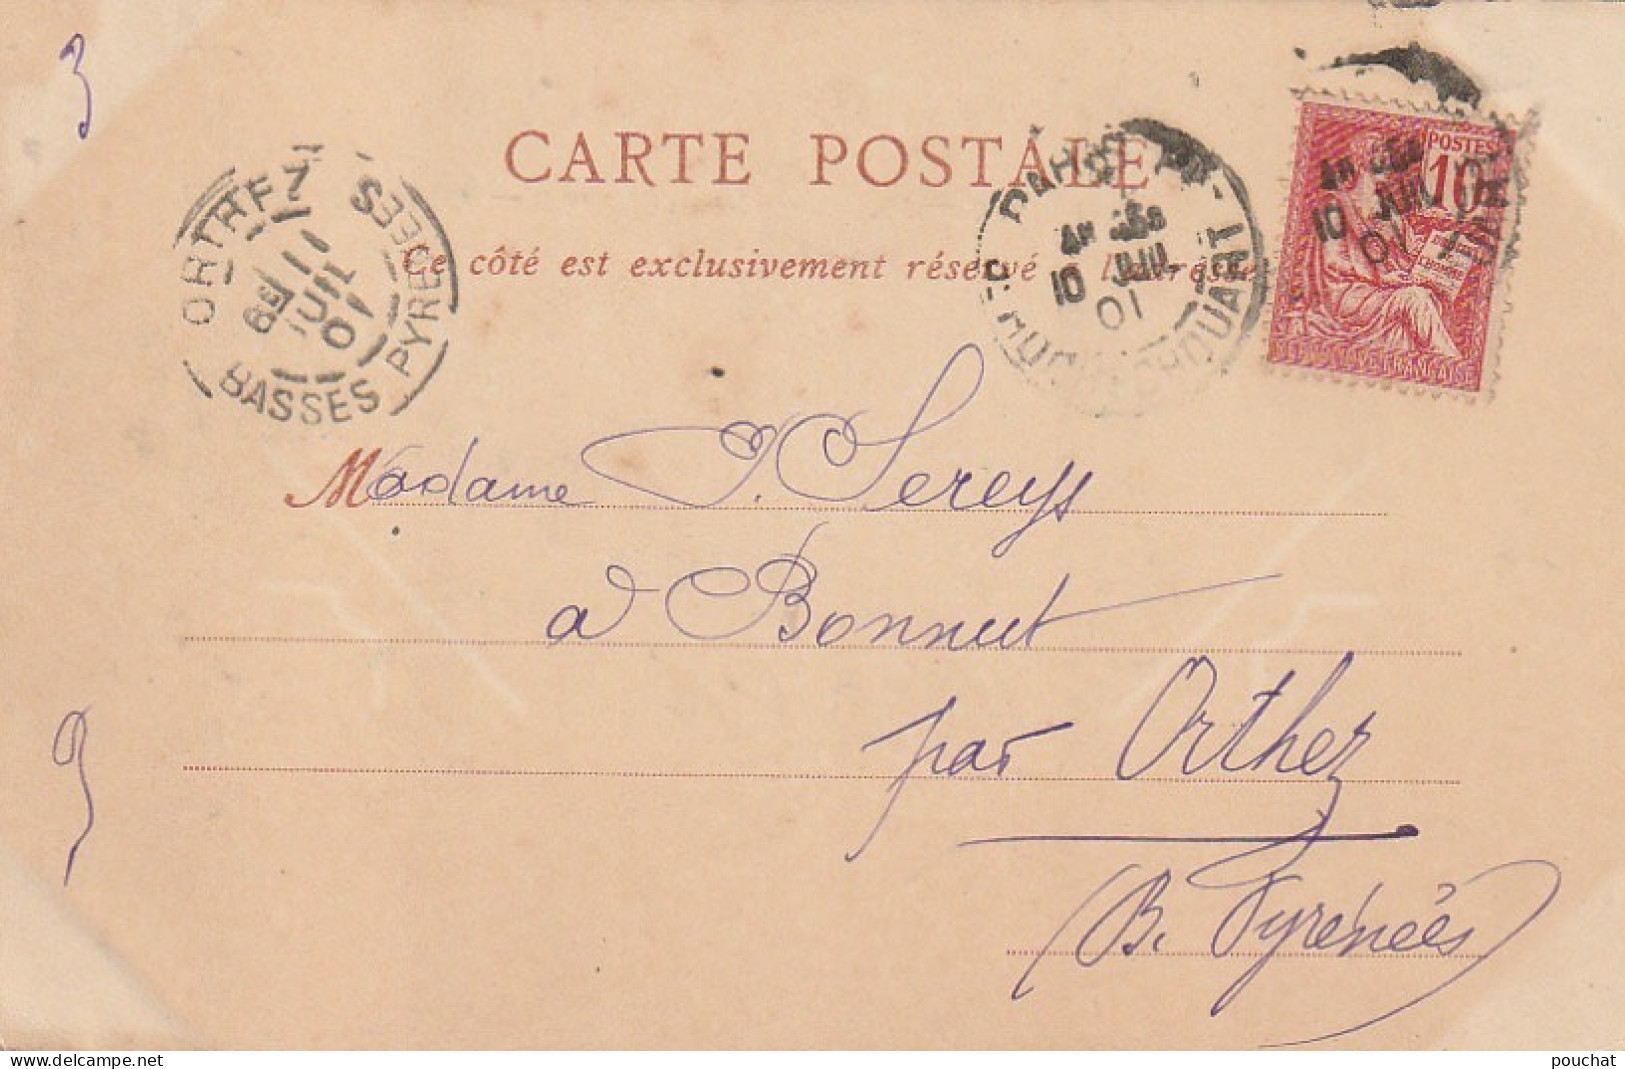 3
CARTE POSTALE
POSTES
10
RÉPUBLIQUE FRANÇAISE
ORTHEZ
BASSES PYRENEES
11
JUIL
01
10 JUIL
01
10 JUIL
01
Ce côté est exclusivement réservé à l'adresse
Madame J. Sereys
à Bonnut
par Orthez
B. Pyrénées
9
delcampe.net
pouchat